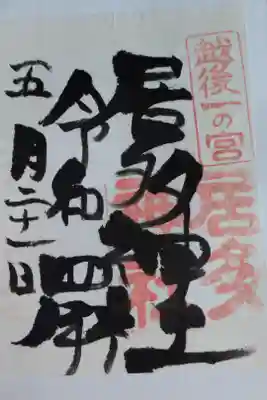 越後一の宮
居多神社
居多神社
令和四年
五月二十一日